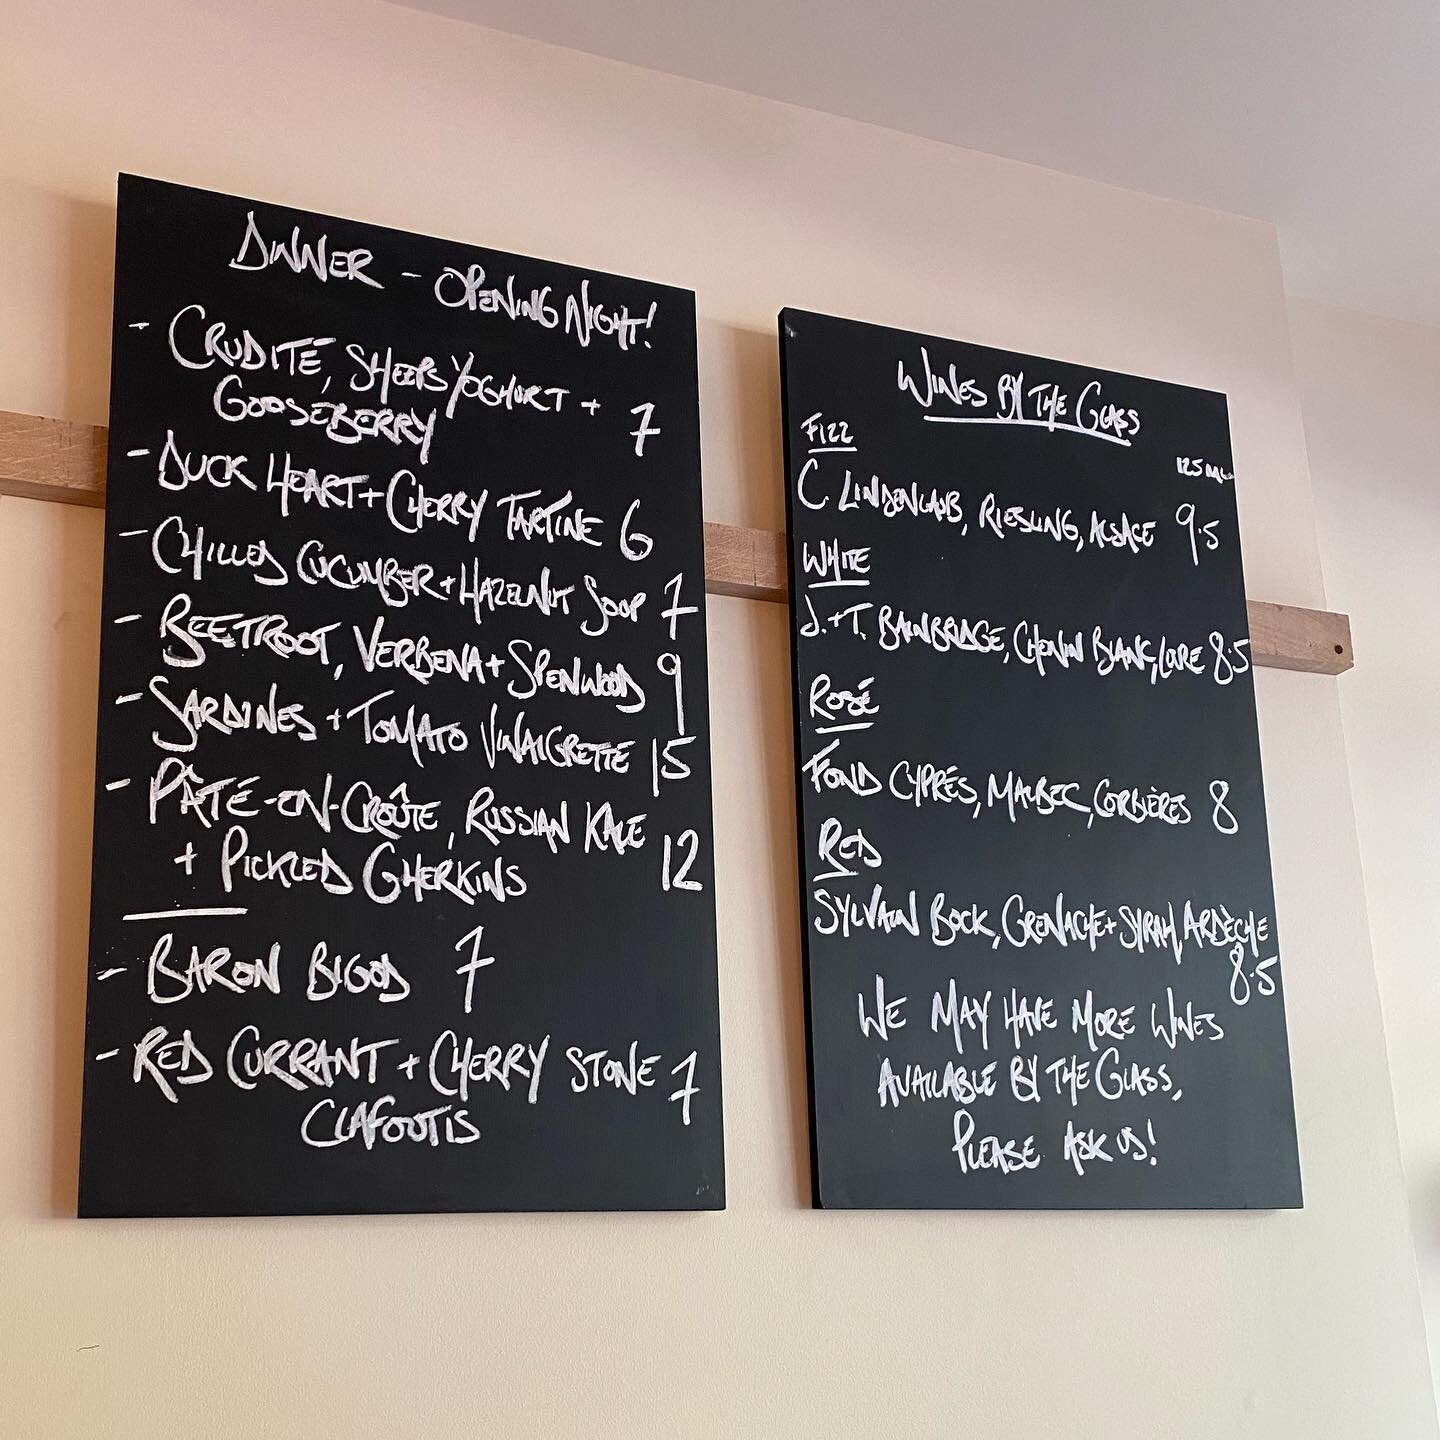 DINNER - OPENING NIGHT!
- CRUDITÉ, SHEEPS YOGHURT +
GOOSEBERRY 7
- DUCK HEART + CHERRY TARTINE 6
- CHILLED CUCUMBER + HAZELNUT SOUP 7
- BEETROOT, VERBENA + SPENWOOD 9
- SARDINES + TOMATO VINAIGRETTE 15
- PÂTÉ-EN-CROÛTE, RUSSIAN KALE
+ PICKLED GHERKINS 12
- BARON BIGOD 7
- RED CURRANT + CHERRY STONE 7
CLAFOUTIS
WINES BY THE GLASS
FIZZ
125ML
C. LINDENLAUB, RIESLING, ALSACE 9.5
WHITE
J.+T. BAINBRIDGE, CHENIN BLANC, LOIRE 8.5
ROSÉ
FOND CYPRÉS, MALBEC, CORBIÈRES 8
RED
SYLVAIN BOCK, GRENACHE + SYRAH, ARDÈCHE
8.5
WE MAY HAVE MORE WINES
AVAILABLE BY THE GLASS,
PLEASE ASK US!